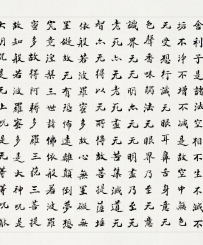 舍利子是諸法空相不生不滅不
垢不淨不增不減是故空中无色
无受想行識无眼耳鼻舌身意无
色聲香味觸法无眼界乃至无意
識界无无明亦无无明盡乃至无
老死亦无老死盡无苦集滅道无
智亦无得以无所得故菩提薩埵
依般若波羅蜜多故心无罣礙无
罣礙故无有恐怖遠離顛倒夢想
究竟涅槃三世諸佛依般若波羅
蜜多故得阿耨多羅三藐三菩提
故知般若波羅蜜多是大神咒是
大明咒是无上咒是无等等咒能